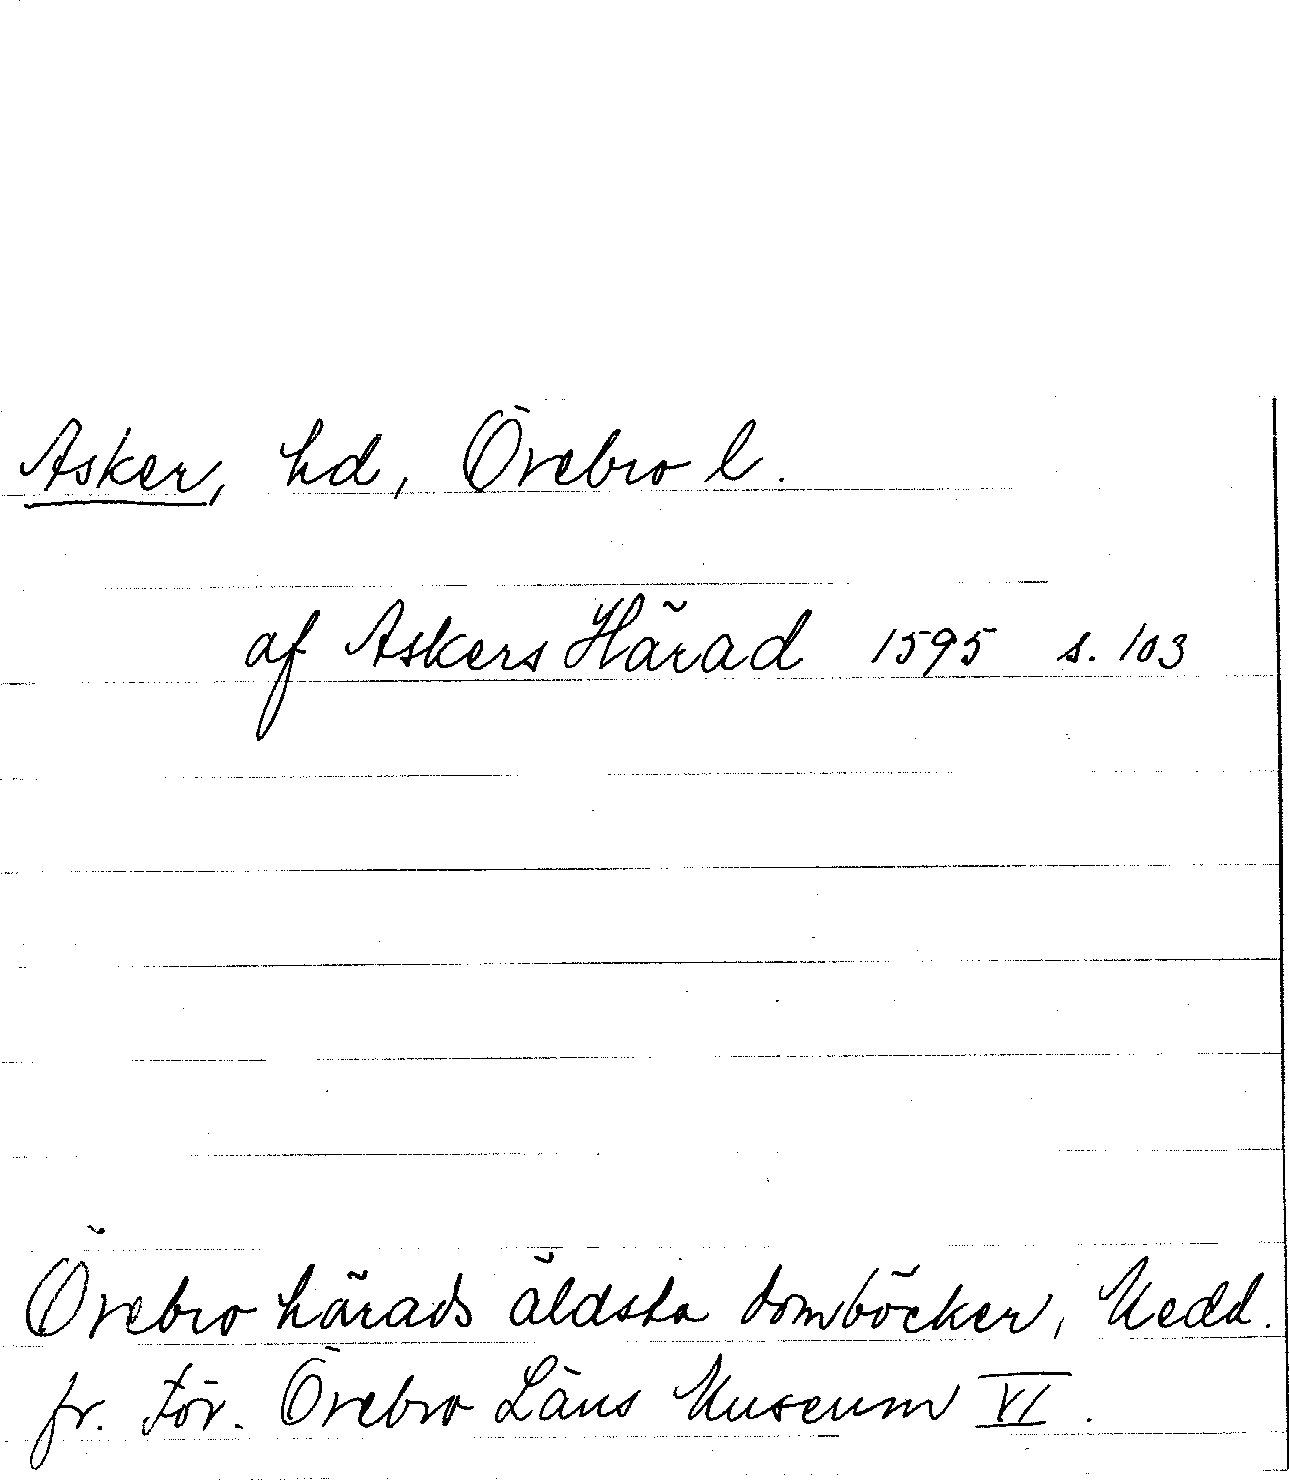 Asker, hd, Örebro l.
af Askers Härad 1595 s. 103
Örebro härads äldsta domböcker, Medd.
fr. För. Örebro Läns Museum VI.